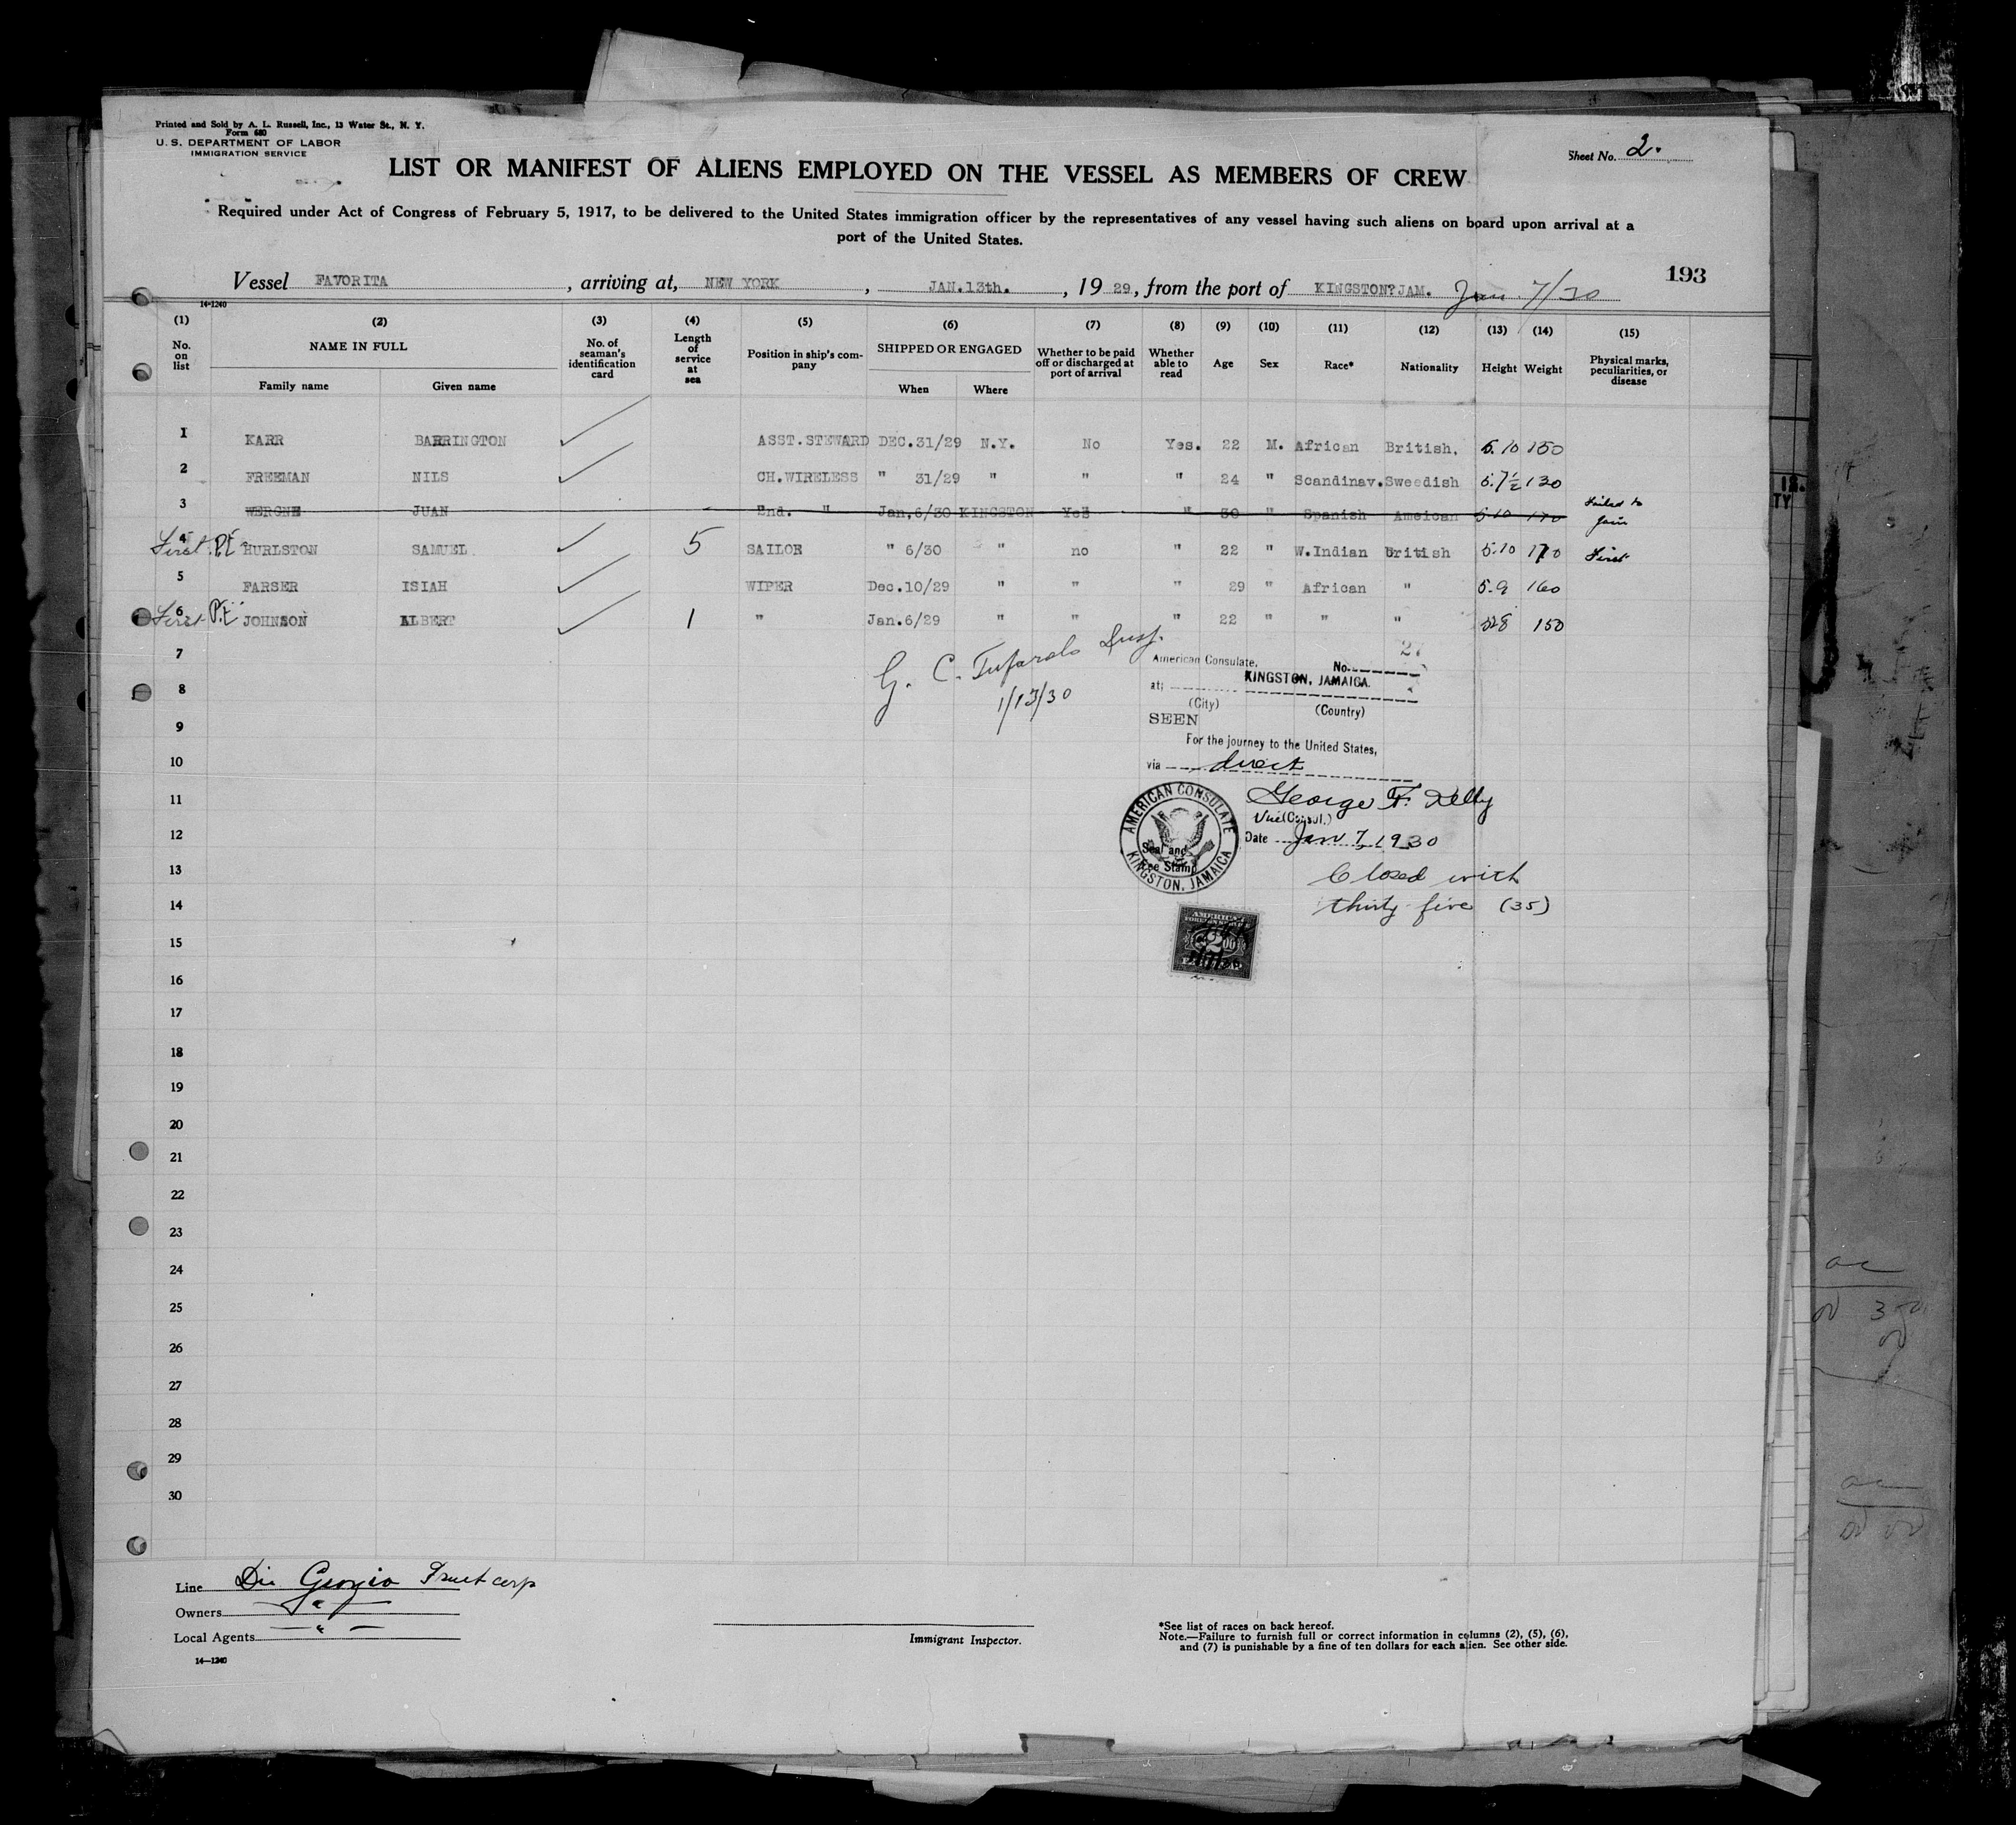 Printed and Sold by A. L. Russell, Inc., 13 Water St., N. Y.
Form 680
U. S. DEPARTMENT OF LABOR
IMMIGRATION SERVICE
Sheet No. 2.
LIST OR MANIFEST OF ALIENS EMPLOYED ON THE VESSEL AS MEMBERS OF CREW
Required under Act of Congress of February 5, 1917, to be delivered to the United States immigration officer by the representatives of any vessel having such aliens on board upon arrival at a
port of the United States.
193
Vessel FAVORITA, arriving at, NEW YORK, JAN.13th., 19 29, from the port of KINGSTON?JAM. Jan. 7/30
14-1240
(1) (2) (3) (4) (5) (6) (7) (8) (9) (10) (11) (12) (13) (14) (15)
No. on list
NAME IN FULL
Family name Given name
No. of seaman's identification card
Length of service at sea
Position in ship's company
SHIPPED OR ENGAGED
When Where
Whether to be paid off or discharged at port of arrival
Whether able to read
Age Sex Race* Nationality Height Weight
Physical marks, peculiarities, or disease
1 KARR BARRINGTON ASST.STEWARD DEC.31/29 N.Y. No Yes. 22 M. African British. 5.10 150
2 FREEMAN NILS CH.WIRELESS " 31/29 " " " 24 " Scandinav. Swedish 5.7½ 130
3 WERGNE JUAN 2nd. " Jan,6/30 KINGSTON Yes " 30 " Spanish Ameican 5 10 170 Failed to join
First P.E. 4 HURLSTON SAMUEL 5 SAILOR " 6/30 " no " 22 " W.Indian British 5.10 170 First
5 FARSER ISIAH WIPER Dec.10/29 " " " 29 " African " 5.9 160
First P.E. 6 JOHNSON ALBERT 1 " Jan.6/29 " " " 22 " " " 5.8 150
7
8
9
10
11
12
13
14
15
16
17
18
19
20
21
22
23
24
25
26
27
28
29
30
G. C. Tufarolo Insp.
1/13/30
American Consulate, No. 27
at; KINGSTON, JAMAICA.
(City) (Country)
SEEN
For the journey to the United States,
via direct
George F. Kelly
Vice (Consul.)
Date Jan 7, 1930
AMERICAN CONSULATE
KINGSTON, JAMAICA
Seal and
Fee Stamp
Closed with
thirty five (35)
2 00
Line Di Giorgio Fruit corp
Owners "
Local Agents "
14—1240
Immigrant Inspector.
*See list of races on back hereof.
Note.—Failure to furnish full or correct information in columns (2), (5), (6),
and (7) is punishable by a fine of ten dollars for each alien. See other side.